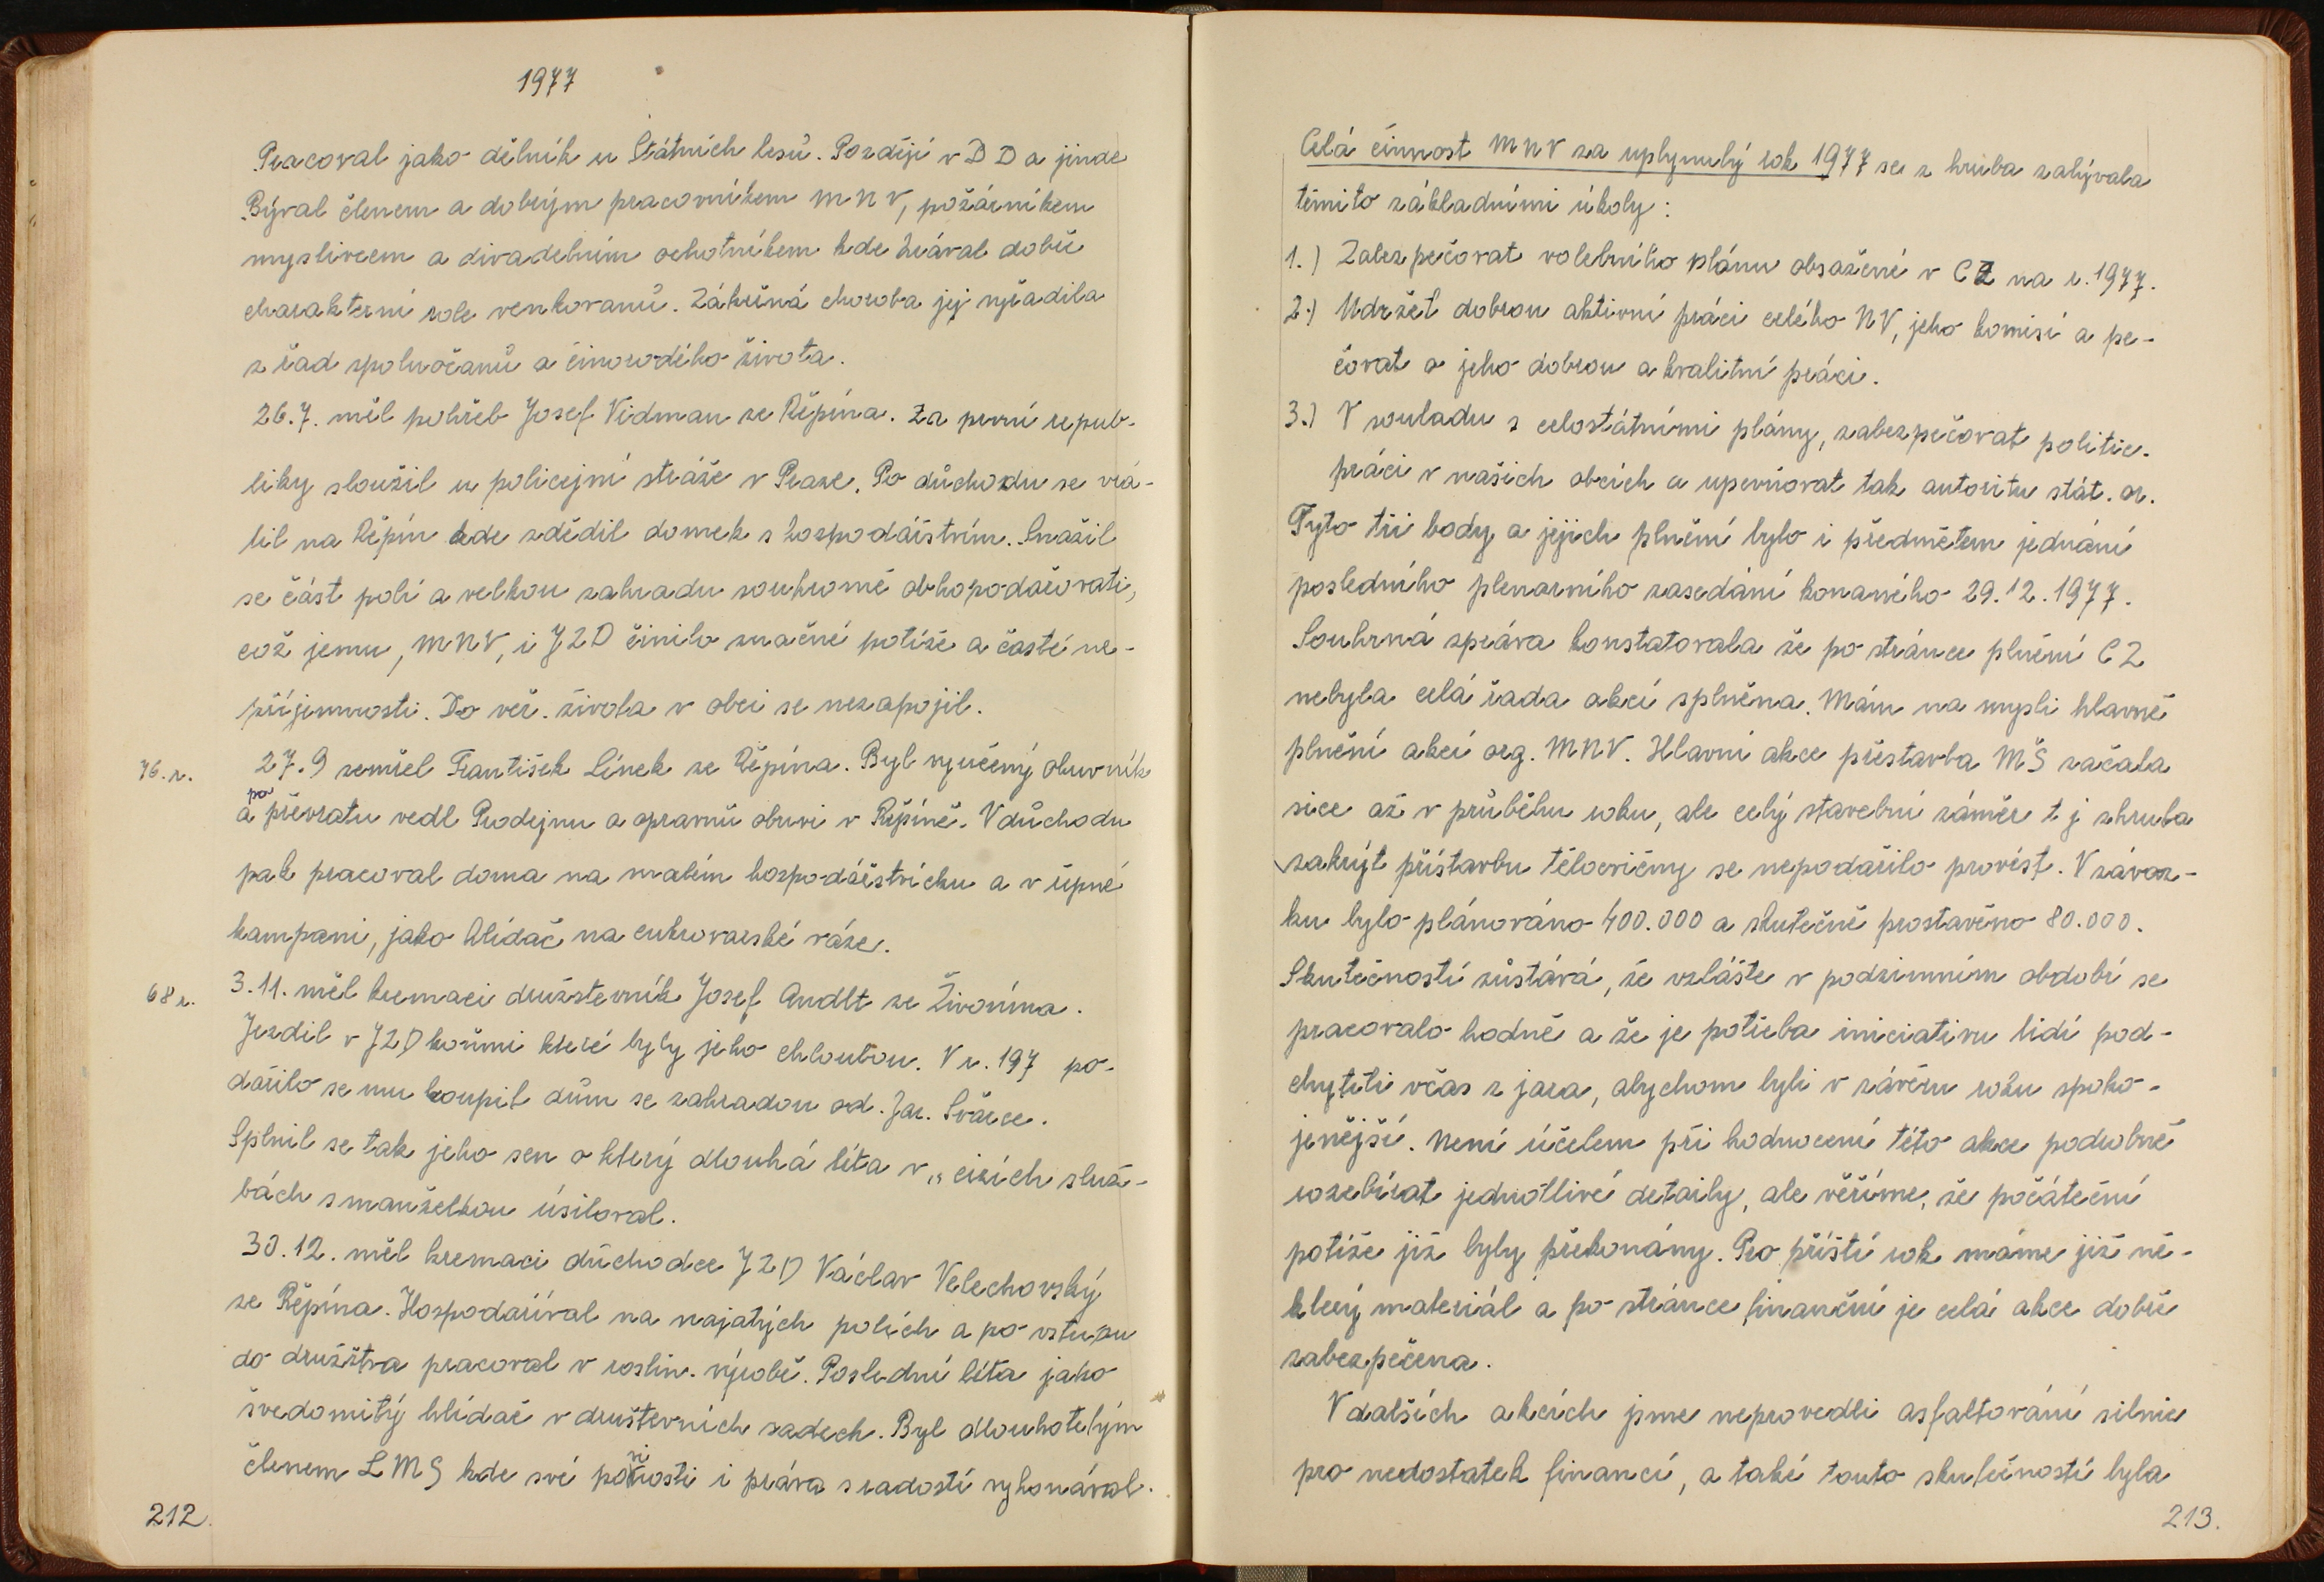 1977
Pracoval jako dělník u Státních lesů. Později v D D a jinde
Býval členem a dobrým pracovníkem MNV, požárníkem
myslivcem a divadelním ochotníkem kde hrával dobře
charakterní role venkovanů. Zákeřná choroba jej vyřadila
z řad spoluočanů a činorodého života.
26.7. měl pohřeb Josef Vidman ze Řepína. Za první repub-
liky sloužil u policejní stráže v Praze. Po důchodu se vrá-
til na Řepín kde zdědil domek s hospodářstvím. Snažil
se část polí a velkou zahradu soukromě obhopodařovati,
což jemu, MNV, i JZD činilo značné potíže a časté ne-
příjemnosti. Do veř. života v obci se nezapojil.
76.r. 27.9 zemřel František Línek ze Řepína. Byl vyučený obuvník
a po převratu vedl Prodejnu a opravnu obuvi v Řepíně. V důchodu
pak pracoval doma na malém hospodářstvíčku a v řepné
kampani, jako hlídač na cukrovarské váze.
68 r. 3.11. měl kremaci družstevník Josef Andlt ze Živonína.
Jezdil v JZD koňmi které byly jeho chloubou. V r. 197 po-
dařilo se mu koupit dům se zahradou od. Jar. Švárce.
Splnil se tak jeho sen o který dlouhá léta v „ cizích služ-
bách s manželkou úsiloval.
30.12. měl kremaci důchodce JZD Václav Velechovský
ze Řepína. Hospodaříval na najatých polích a po vstupu
do družštva pracoval v roslin. výrobě. Poslední léta jako
švedomitý hlídač v društevních sadech. Byl dlouhotelým
členem LMS kde své povinosti i práva s radostí vykonával.
212.
Celá činnost MNV za uplynulý rok 1977 se z hruba zabývala
těmito základními úkoly :
1.) Zabezpečovat volebního plánu obsažené v CZ na r. 1977.
2.) Udržet dobrou aktivní práci celého NV, jeho komisí a pe-
čovat o jeho dobrou a kvalitní práci.
3.) V souladu s celostátními plány, zabezpečovat politic.
práci v našich obcích a upevňovat tak autoritu stát. or.
Tyto tři body a jejich plnění bylo i předmětem jednání
posledního plenarního zasedání konaného 29.12.1977.
Souhrná zpráva konstatovala že po stránce plnění CZ
nebyla celá řada akcí splněna. Mám na mysli hlavně
plnění akcí org. MNV. Hlavní akce přestavba MŠ začala
sice až v průběhu roku, ale celý stavební záměr t j zhruba
zakrýt přístavbu tělocvičny se nepodařilo provést. V závaz-
ku bylo plánováno 400.000 a skutečně prostavěno 80.000.
Skutečností zůstává, že vzláště v podzimním období se
pracovalo hodně a že je potřeba iniciativu lidí pod-
chytiti včas z jara, abychom byli v závěru roku spoko-
jenější. Není účelem při hodnocení této akce podrobně
rozebírat jednotlivé detaily, ale věříme, že počáteční
potíže již byly překonány. Pro příští rok máme již ně-
který materiál a po stránce finanční je celá akce dobře
zabezpečena.
V dalších akcích jsme neprovedli asfaltování silnic
pro nedostatek financí, a také touto skutečností byla
213.